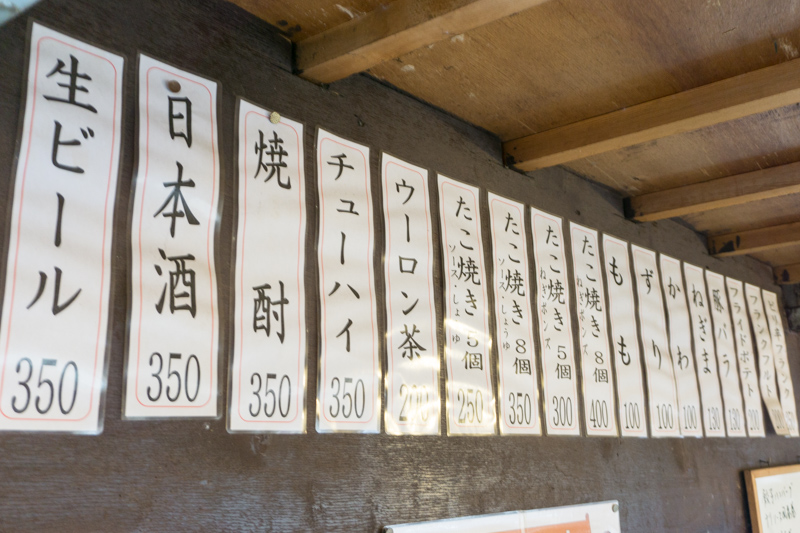 生ビール 350
日本酒 350
焼酎 350
チューハイ 350
ウーロン茶 200
たこ焼き 5個 ソース・しょうゆ 250
たこ焼き 8個 ソース・しょうゆ 350
たこ焼き 5個 ねぎポンズ 300
たこ焼き 8個 ねぎポンズ 400
もも 100
ずり 100
かわ 100
ねぎま 130
豚バラ 130
フライドポテト
フランクフルト